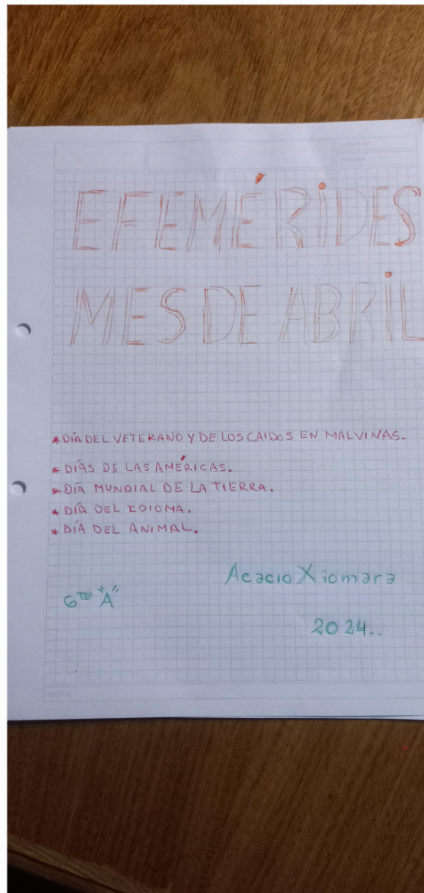 EFEMÉRIDES
MES DE ABRIL
* DÍA DEL VETERANO Y DE LOS CAIDOS EN MALVINAS.
* DÍAS DE LAS AMÉRICAS.
* DÍA MUNDIAL DE LA TIERRA.
* DÍA DEL IDIOMA.
* DÍA DEL ANIMAL.
Acacio Xiomara
6TO "A"
2024..